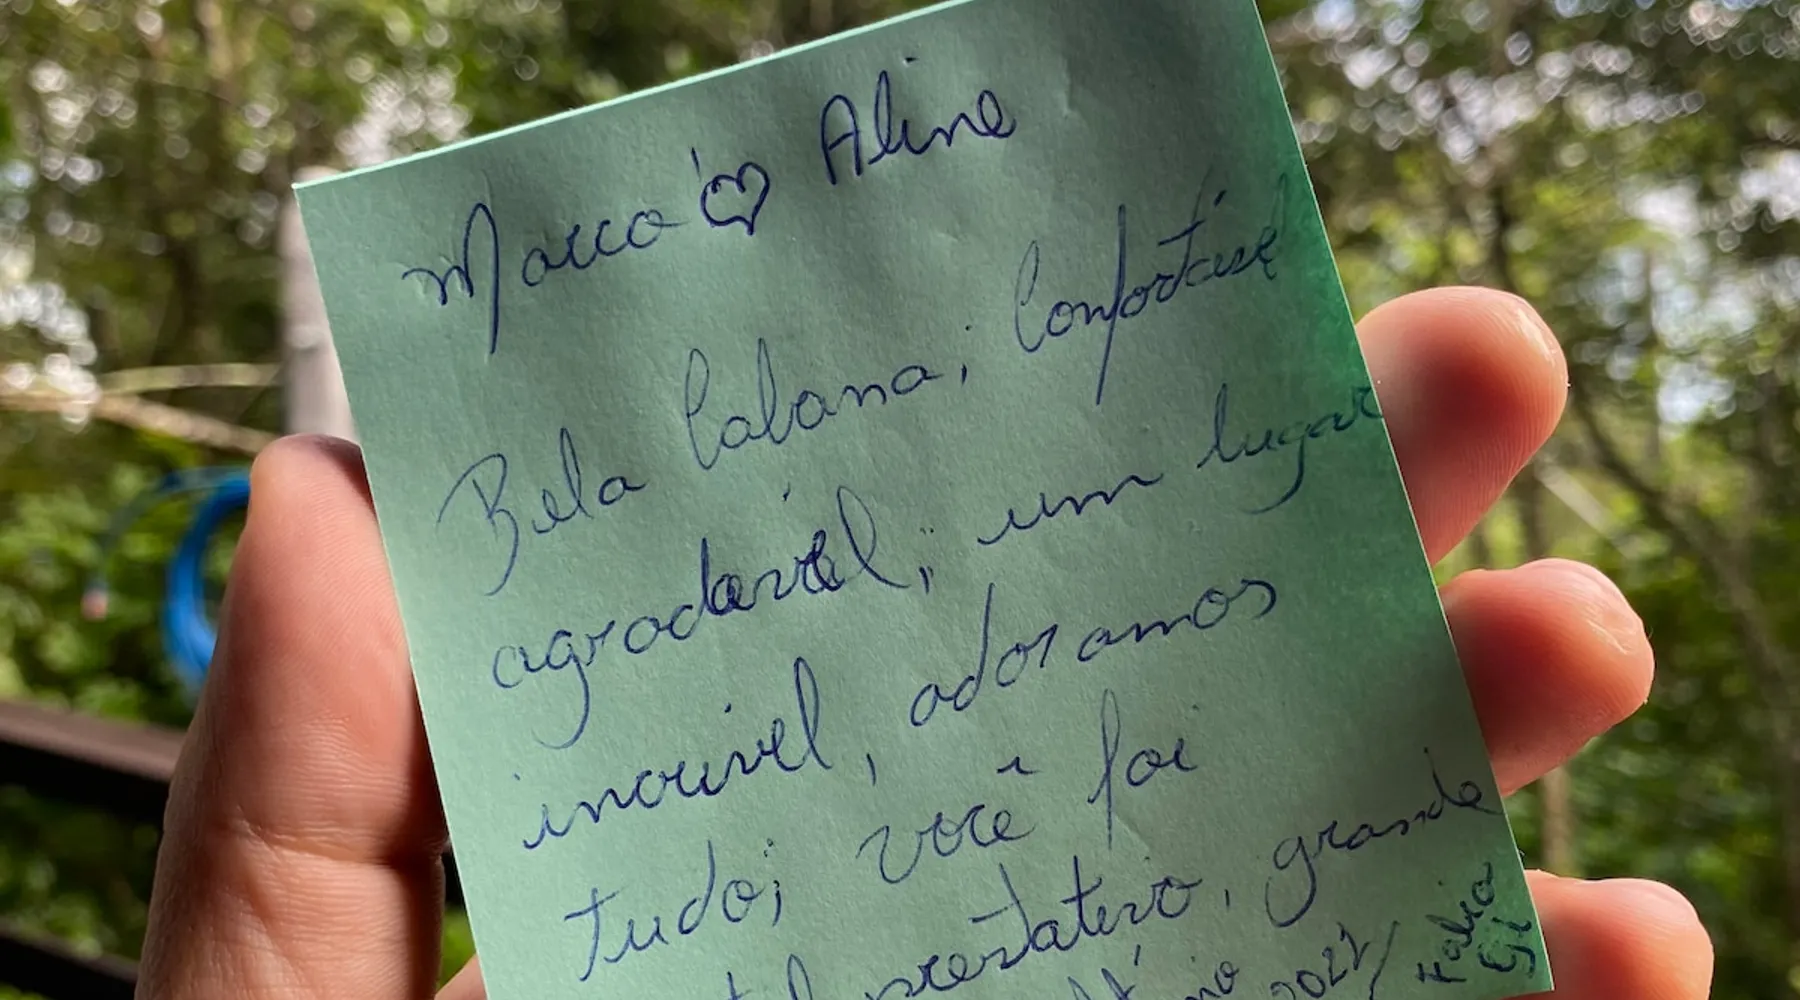 Marco ♡ Aline
Bela Cabana, Confortável
agradável, um lugar
incrivel, adoramos
tudo; você foi
prestativo, grande
Fabio
Gi